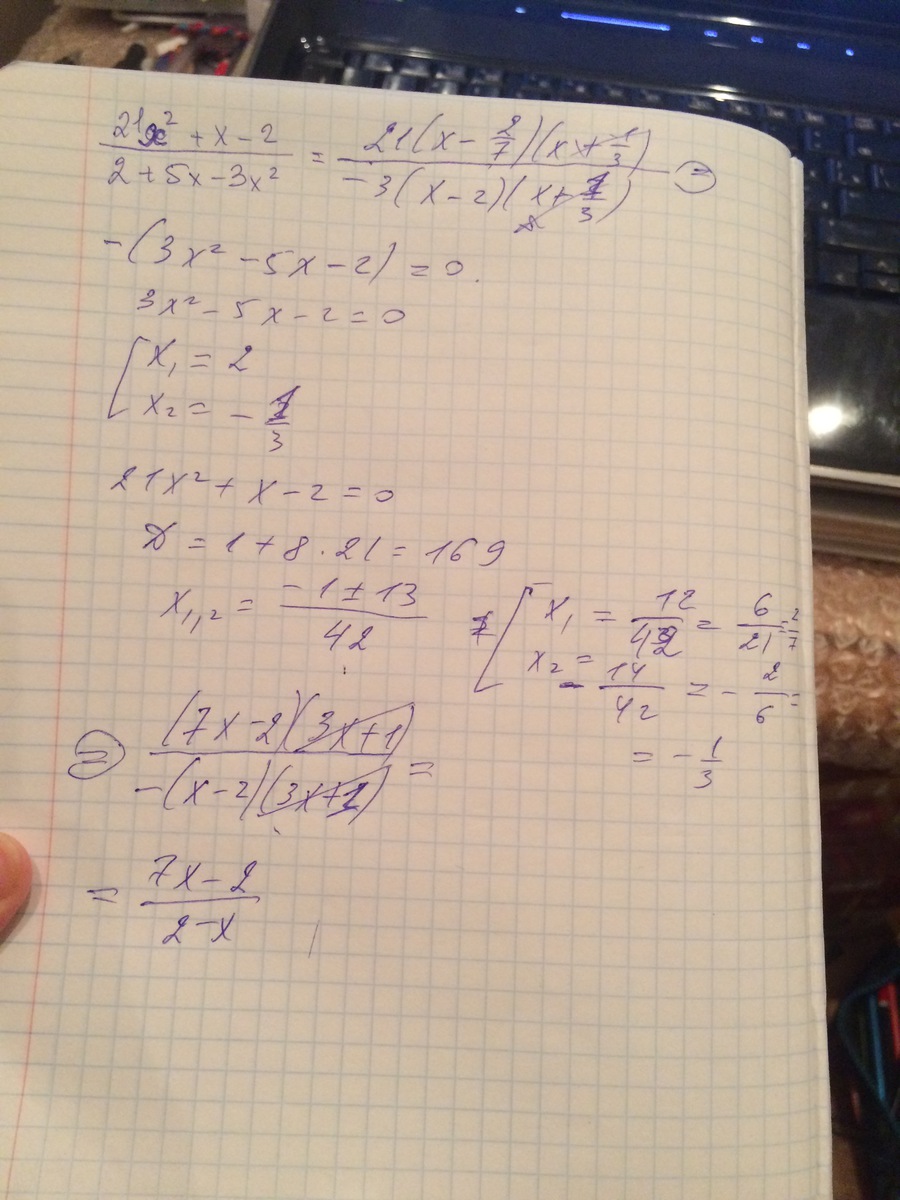 (21x² + x - 2)/(2 + 5x - 3x²) = 21(x - 2/7)(x + 1/3)/(-3(x - 2)(x + 1/3)) (=)
-(3x² - 5x - 2) = 0.
3x² - 5x - 2 = 0
[ x₁ = 2
x₂ = - 1/3
21x² + x - 2 = 0
D = 1 + 8 · 21 = 169
x₁,₂ = (-1 ± 13)/42
[ x₁ = 12/42 = 6/21 = 2/7
x₂ = - 14/42 = - 2/6 =
= - 1/3
(=) (7x - 2)(3x + 1)/(-(x - 2)(3x + 1)) =
= (7x - 2)/(2 - x)